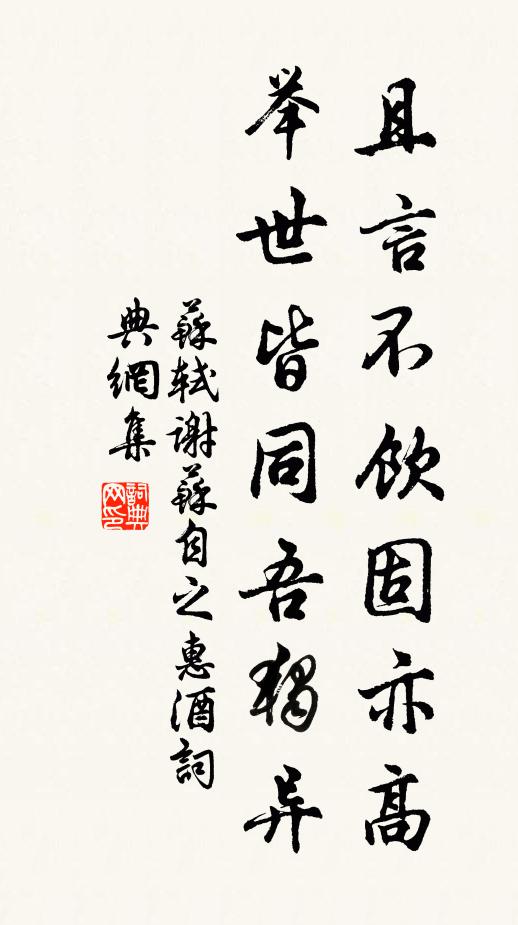 且言不飲固亦高
举世皆同吾獨异
蘇軾謝蘇自之惠酒詞
典網集
詞典
网印